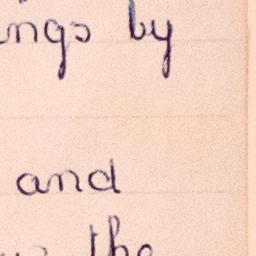 ngs by
and
the